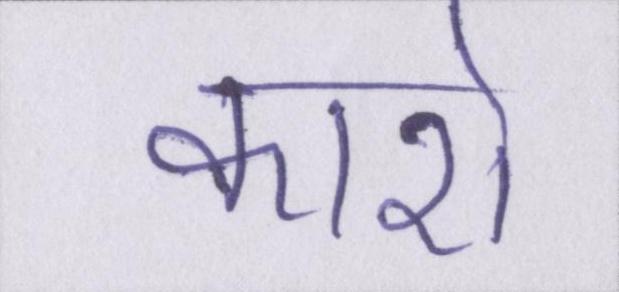 कारो